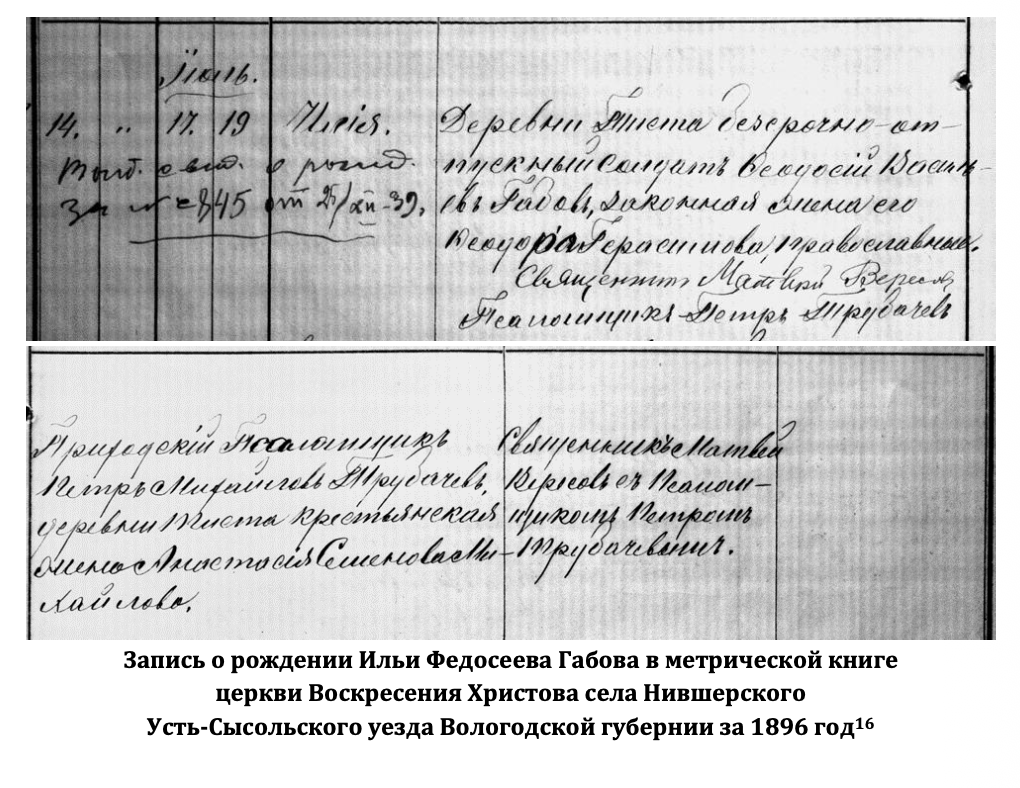 Іюль.
14. " 17. 19 Илія.
Выд. свид. о рожд.
За № 845 от 25/XII-39.
Деревни Тиста безсрочно-от-
пускный солдатъ Ѳеодосій Василь-
евъ Габовъ, законная жена его
Ѳеодора Герасимова, православные.
Священникъ Матвѣй Вересовъ
Псаломщикъ Петръ Трубачевъ
Приходскій Псаломщикъ
Петръ Михайловъ Трубачевъ,
деревни Тиста крестьянская
жена Анастасія Семенова Ми-
хайлова.
Священникъ Матвей
Вересовъ съ Псалом-
щикомъ Петромъ
Трубачевымъ.
Запись о рождении Ильи Федосеева Габова в метрической книге
церкви Воскресения Христова села Нившерского
Усть-Сысольского уезда Вологодской губернии за 1896 год¹⁶